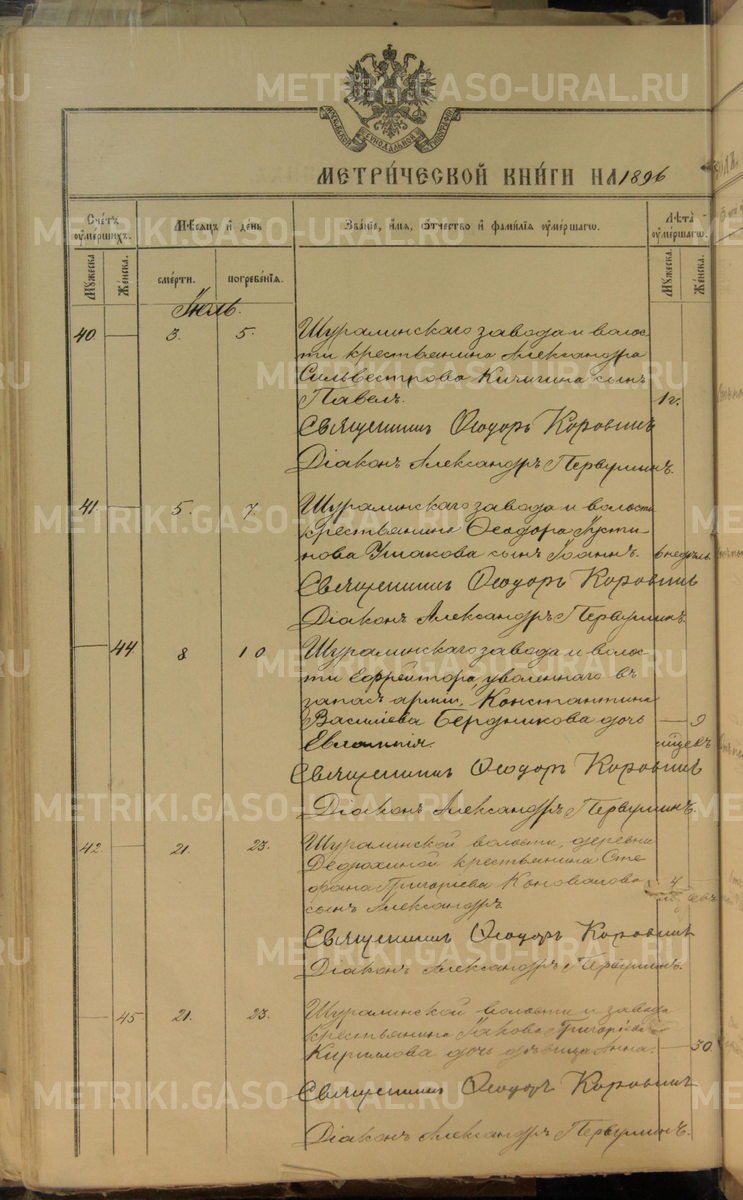 МОСКОВСКОЙ СѴНОДАЛЬНОЙ ТИПОГРАФІИ
МЕТРИ́ЧЕСКОЙ КНИ́ГИ НА 1896
Сче́тъ ᲂу҆ме́ршихъ.
Мѣ́сяцъ и҆ де́нь
Зва́нїе, и҆́мя, ѻ҆́тчество и҆ фамѝлїя ᲂу҆ме́ршагѡ.
Лѣ́та ᲂу҆ме́ршагѡ.
Мꙋ́жеска.
Же́нска.
сме́рти.
погребе́нїя.
Мꙋ́жеска.
Же́нска.
Іюль.
40 3. 5. Шуралинскаго завода и волос
ти крестьянина Александра
Сильвестрова Кичигина сынъ
Павелъ. 1 г.
Священникъ Ѳеодоръ Коровинъ
Діаконъ Александръ Первушинъ.
41 5. 7. Шуралинскаго завода и волости
крестьянина Ѳеодора Iусти
нова Ушакова сынъ Іоаннъ. 6 недѣль.
Священникъ Ѳеодоръ Коровинъ
Діаконъ Александръ Первушинъ.
44 8 10 Шуралинскаго завода и волос
ти Ефрейтора, уволеннаго въ
запасъ арміи, Константина
Васильева Бердникова дочь 9
Евлампія. мѣсяцевъ
Священникъ Ѳеодоръ Коровинъ
Діаконъ Александръ Первушинъ.
42. 21. 23. Шуралинской волости, деревни
Дедюхиной крестьянина Сте
фана Григорьева Коновалова 4
сынъ Александръ
Священникъ Ѳеодоръ Коровинъ
Діаконъ Александръ Первушинъ.
45 21. 23. Шуралинской волости и завода
крестьянина Іакова Григорьева
Кирилова дочь дѣвица Анна. 50
Священникъ Ѳеодоръ Коровинъ
Діаконъ Александръ Первушинъ.
METRIKI.GASO-URAL.RU